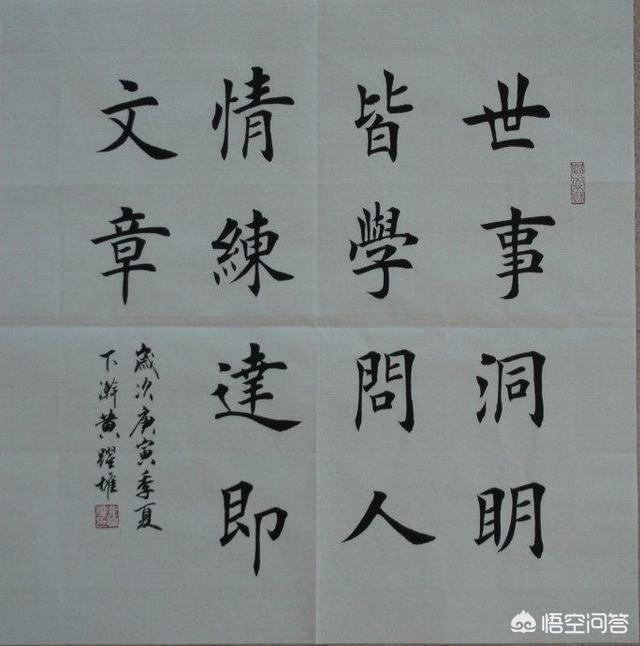 世事洞明
皆學問人
情練達即
文章
歲次庚寅季夏
下澣黄躍堆
悟空问答